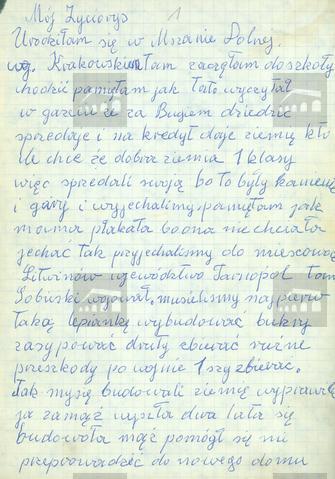 Mój Życiorys 1
Urodziłam się w Mszanie Dolnej
wg. Krakowskim tam zaczęłam do szkoły
chodzić pamętam jak Tato wyczytał
w gazecie że za Bugiem dziedzic
sprzedaje i na kredyt daje ziemię kto
chce że dobra ziemia 1 klasy
więc sprzedali swoją bo to były kamienie
i góry i wyjechalimy, pamętam jak
mama płakała bo ona nie chciała
jechać tak przyjechalimy do miescowoś
Litwinów wjewódźtwo Tarnopol tam
Sobieski wojował, musielimy najpierw
taką lepiankę wybudować bukry
zasypować druty zbierać rużne
przeszkody po wojnie 1 szy zbierać.
Jak mysię budowali ziemię wyprawili
ja zamąż wyszła dwa lata się
budowała mąż pomógł się nie
przeprowadzić do nowego domu